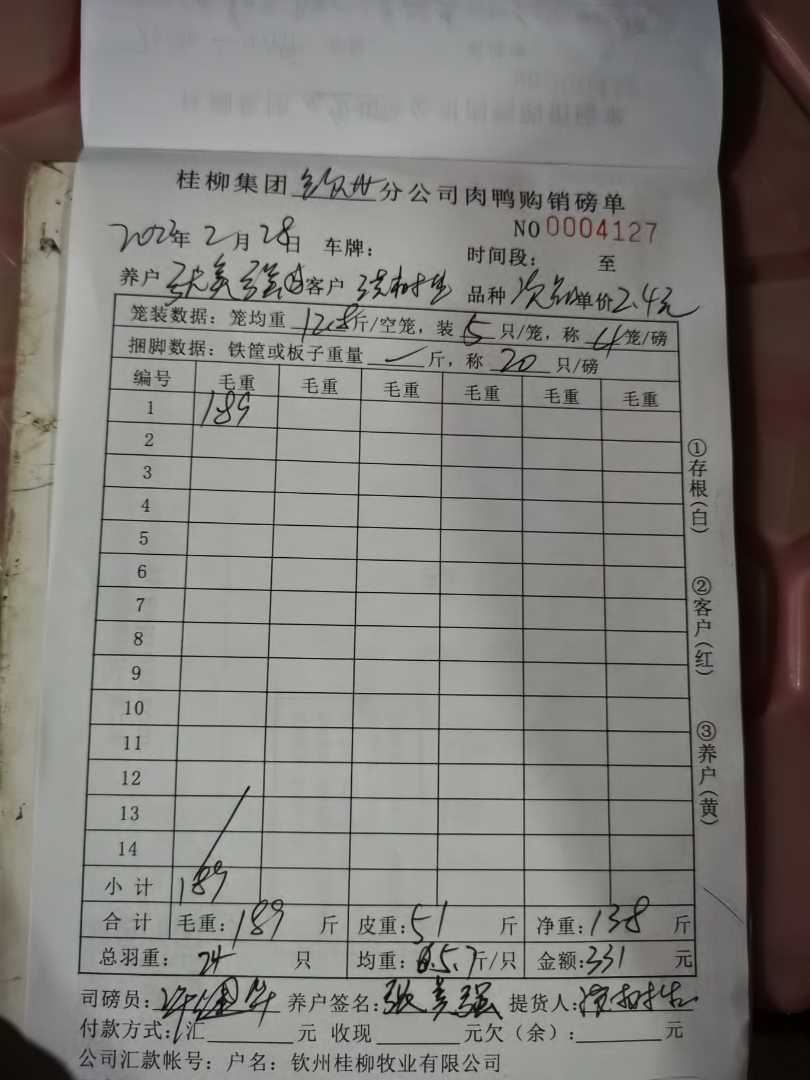 桂柳集团钦州分公司肉鸭购销磅单
NO 0004127
2022年2月28日 车牌: 时间段: 至
养户 张美强 客户 品种 次 单价2.4元
笼装数据: 笼均重 12.8斤/空笼, 装 5 只/笼, 称 4笼/磅
捆脚数据: 铁筐或板子重量 斤, 称 20 只/磅
编号 毛重 毛重 毛重 毛重 毛重 毛重
1 189
2
3
4
5
6
7
8
9
10
11
12
13
14
小计 189
合计 毛重: 189 斤 皮重: 51 斤 净重: 138 斤
总羽重: 24 只 均重: 5.7斤/只 金额: 331 元
司磅员: 养户签名: 张美强 提货人:
付款方式: 汇 元 收现 元欠(余): 元
公司汇款帐号: 户名: 钦州桂柳牧业有限公司
①存根(白)
②客户(红)
③养户(黄)